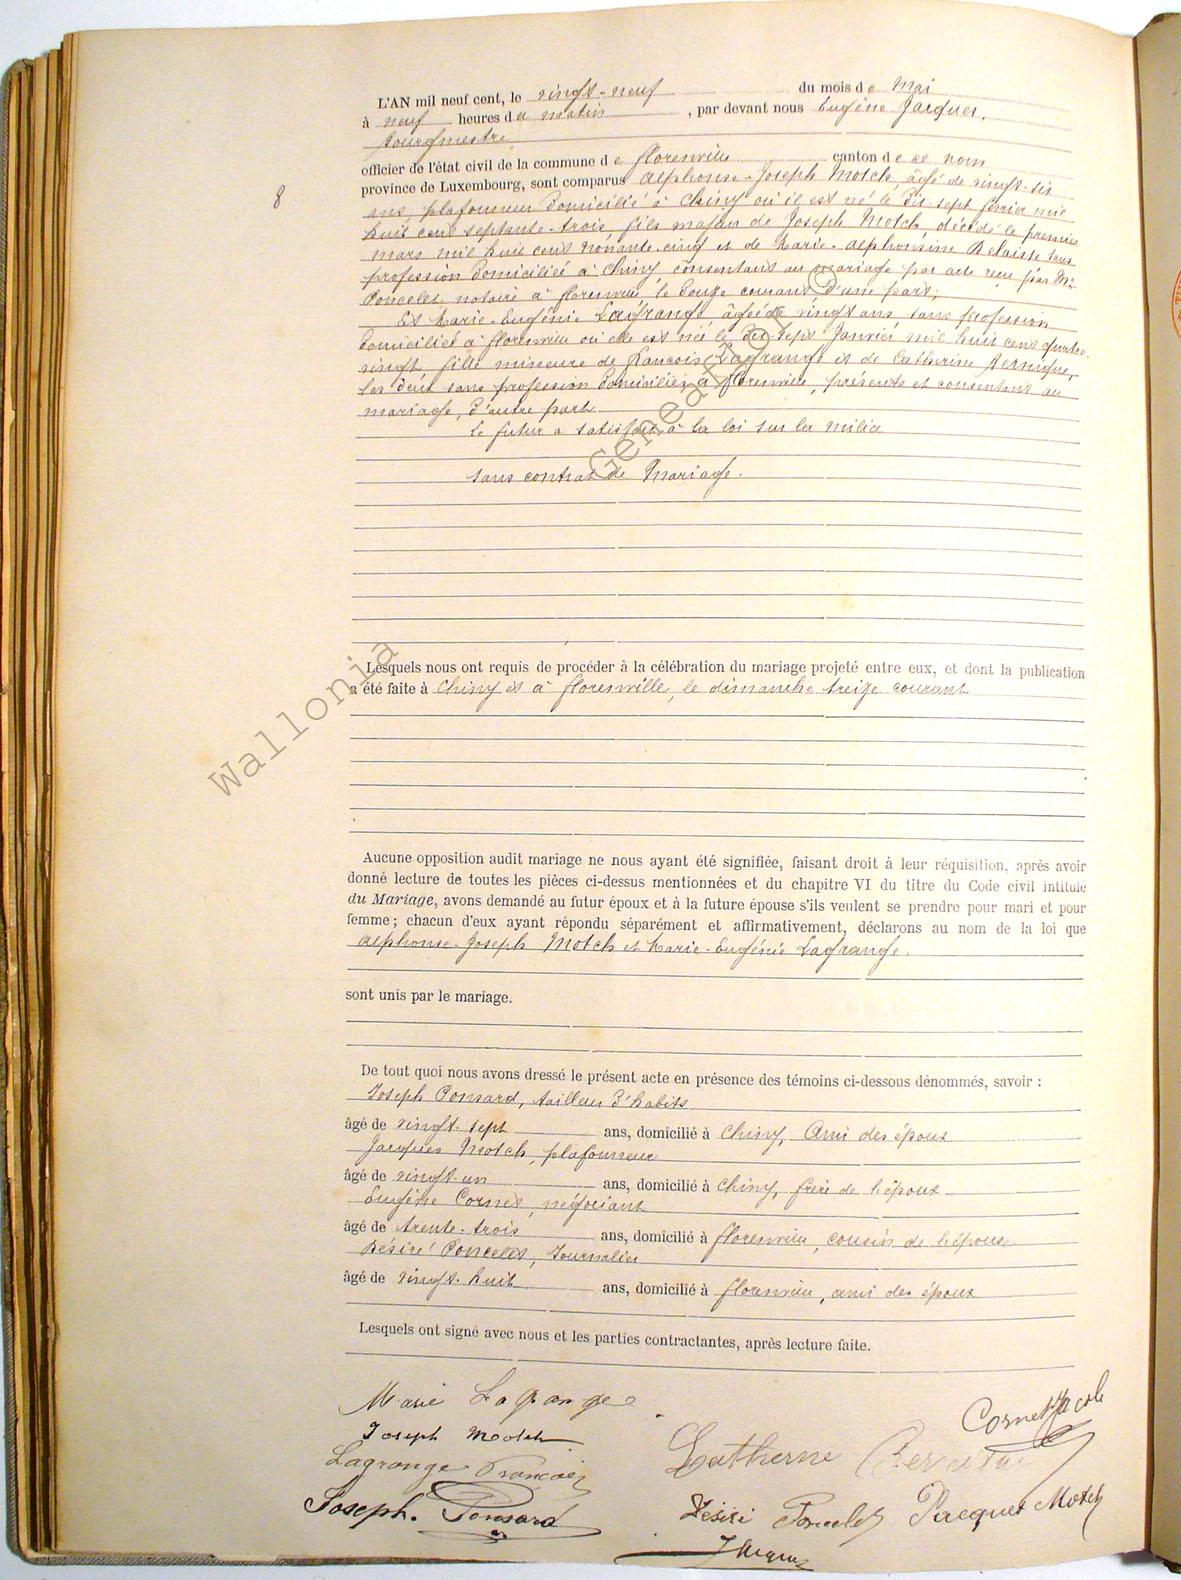 L'AN mil neuf cent, le vingt-neuf du mois de Mai
à neuf heures du matin, par devant nous Eugène Jacques,
bourgmestre
officier de l'état civil de la commune de florenville canton de ce nom
8
province de Luxembourg, sont comparus Alphonse-Joseph Motch, âgé de vingt-six
ans, plafonneur domicilié à Chiny où il est né le dix-sept février mil
huit cent septante-trois, fils majeur de Joseph Motch, décédé le premier
mars mil huit cent nonante-cinq et de Marie-Alphonsine Belaisse sans
profession domiciliée à Chiny, consentant au mariage par acte reçu par Me
Poncelet notaire à florenville, le douze courant, d'une part;
Et Marie-Eugénie Lagrange âgée de vingt ans sans profession
domiciliée à florenville où elle est née le dix-sept Janvier mil huit cent quatre-
vingt, fille mineure de François Lagrange et de Catherine
les deux sans profession domiciliés à florenville, présents et consentant au
mariage, d'autre part
le futur a satisfait à la loi sur la milice
sans contrat de Mariage.
Lesquels nous ont requis de procéder à la célébration du mariage projeté entre eux, et dont la publication
a été faite à Chiny et à florenville, le dimanche treize courant
Aucune opposition audit mariage ne nous ayant été signifiée, faisant droit à leur réquisition, après avoir
donné lecture de toutes les pièces ci-dessus mentionnées et du chapitre VI du titre du Code civil intitulé
du Mariage, avons demandé au futur époux et à la future épouse s'ils veulent se prendre pour mari et pour
femme; chacun d'eux ayant répondu séparément et affirmativement, déclarons au nom de la loi que
Alphonse-Joseph Motch et Marie-Eugénie Lagrange.
sont unis par le mariage.
De tout quoi nous avons dressé le présent acte en présence des témoins ci-dessous dénommés, savoir :
Joseph Ponsard, tailleur d'habits
âgé de vingt-sept ans, domicilié à Chiny, Ami des époux
Jacques Motch, plafonneur
âgé de vingt-un ans, domicilié à Chiny, frère de l'époux
Eugène Cornet, négociant
âgé de trente-trois ans, domicilié à florenville, cousin de l'épouse
Désiré Poncelet, Journalier
âgé de vingt-huit ans, domicilié à florenville, ami des époux
Lesquels ont signé avec nous et les parties contractantes, après lecture faite.
Marie Lagrange
Cornet Jacob
Joseph Motch
Lagrange François
Catherine
Joseph. Ponsard
Désiré Poncelet
Jacques Motch
Jacques
Wallonia Genealogy ©